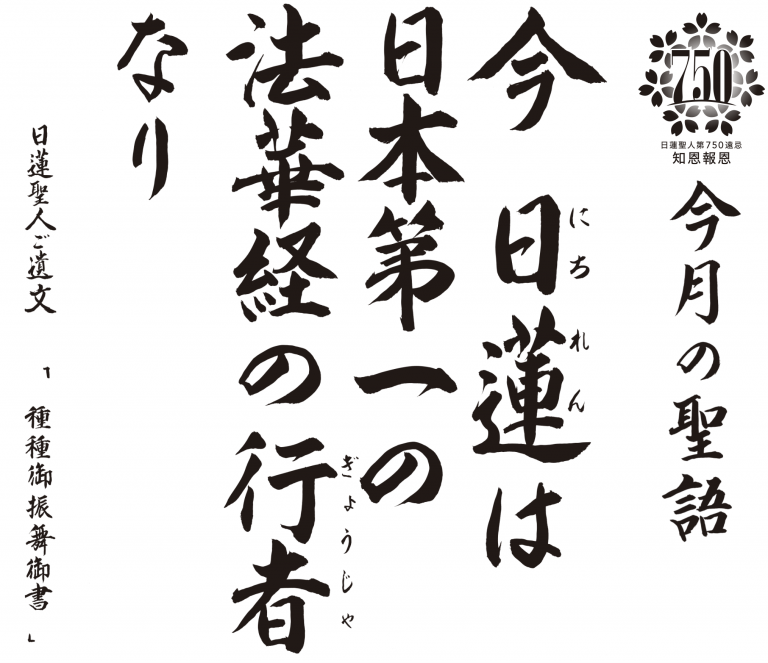 750
日蓮聖人第750遠忌
知恩報恩
今月の聖語
今 日蓮は
にちれん
日本第一の
法華経の行者
ぎょうじゃ
なり
日蓮聖人ご遺文 「種種御振舞御書」